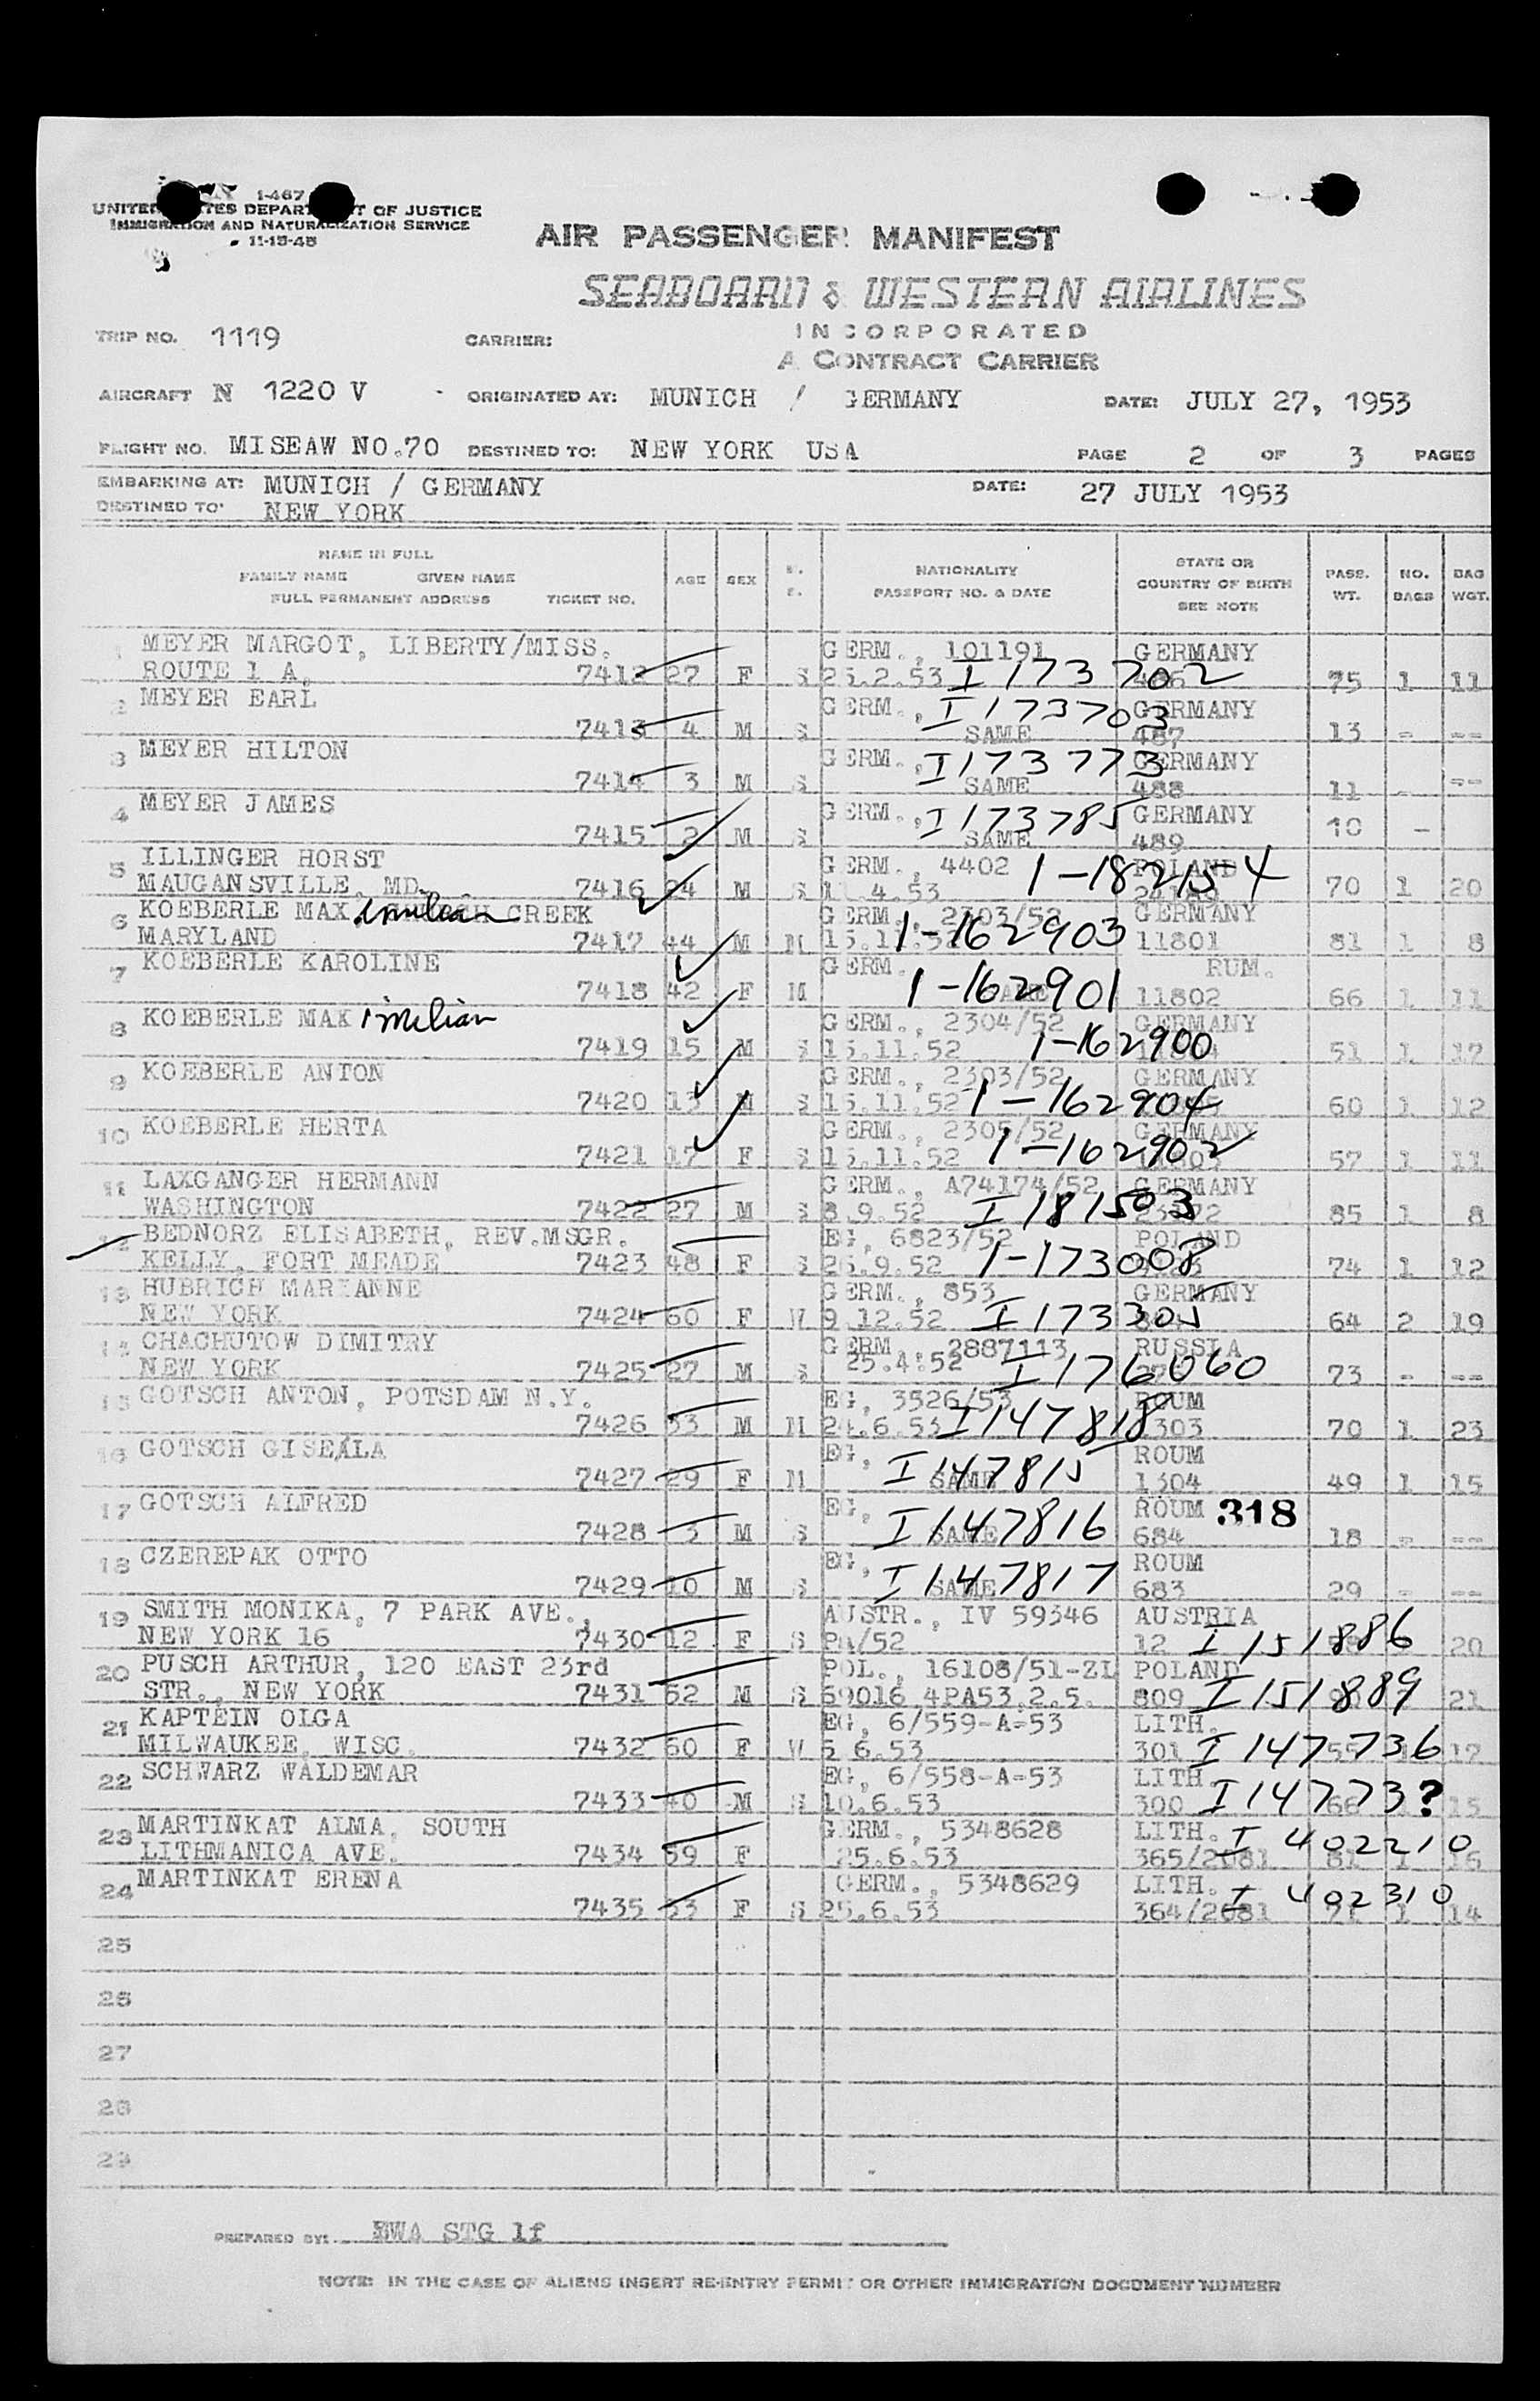 I-467
UNITED STATES DEPARTMENT OF JUSTICE
IMMIGRATION AND NATURALIZATION SERVICE
11-15-48
AIR PASSENGER MANIFEST
SEABOARD & WESTERN AIRLINES
INCORPORATED
A CONTRACT CARRIER
TRIP NO. 1119 CARRIER:
AIRCRAFT N 1220 V ORIGINATED AT: MUNICH / GERMANY DATE: JULY 27, 1953
FLIGHT NO. MISEAW NO.70 DESTINED TO: NEW YORK USA PAGE 2 OF 3 PAGES
EMBARKING AT: MUNICH / GERMANY DATE: 27 JULY 1953
DESTINED TO: NEW YORK
NAME IN FULL
FAMILY NAME GIVEN NAME
FULL PERMANENT ADDRESS TICKET NO. AGE SEX NATIONALITY PASSPORT NO. & DATE STATE OR COUNTRY OF BIRTH SEE NOTE PASS. WT. NO. BAGS BAG WGT.
1 MEYER MARGOT, LIBERTY/MISS. GERM., 101191 GERMANY
ROUTE 1 A, 7412 27 F S 25.2.53 I 173702 486 75 1 11
2 MEYER EARL GERM., I 173703 GERMANY
7413 4 M S SAME 487 13 - --
3 MEYER HILTON GERM., I 173773 GERMANY
7414 3 M S SAME 488 11 - --
4 MEYER JAMES GERM., I 173785 GERMANY
7415 2 M S SAME 489 10 -
5 ILLINGER HORST GERM., 4402 1-182154 POLAND
MAUGANSVILLE, MD. 7416 24 M S 11.4.53 70 1 20
6 KOEBERLE MAX imilian CREEK GERM., 2303/52 GERMANY
MARYLAND 7417 44 M M 15.11.52 1-162903 11801 81 1 8
7 KOEBERLE KAROLINE GERM. RUM.
7418 42 F M 1-162901 11802 66 1 11
8 KOEBERLE MAX imilian GERM., 2304/52 GERMANY
7419 15 M S 15.11.52 1-162900 51 1 17
9 KOEBERLE ANTON GERM., 2303/52 GERMANY
7420 13 M S 15.11.52 1-162904 60 1 12
10 KOEBERLE HERTA GERM., 2305/52 GERMANY
7421 17 F S 15.11.52 1-162902 57 1 11
11 LAXGANGER HERMANN GERM., A74174/52 GERMANY
WASHINGTON 7422 27 M S 8.9.52 I 181503 85 1 8
12 BEDNORZ ELISABETH, REV.MSGR. EG, 6823/52 POLAND
KELLY, FORT MEADE 7423 48 F S 26.9.52 1-173008 74 1 12
13 HUBRICH MARIANNE GERM., 853 GERMANY
NEW YORK 7424 60 F W 9.12.52 I 173305 64 2 19
14 CHACHUTOW DIMITRY GERM., 2887113 RUSSIA
NEW YORK 7425 27 M S 25.4.52 I 176060 73 - --
15 GOTSCH ANTON, POTSDAM N.Y. EG, 3526/53 ROUM
7426 33 M M 24.6.53 I 147818 1303 70 1 23
16 GOTSCH GISEALA EG, ROUM
7427 29 F M SAME I 147815 1304 49 1 15
17 GOTSCH ALFRED EG, ROUM 318
7428 3 M S SAME I 147816 684 18 - --
18 CZEREPAK OTTO EG, ROUM
7429 10 M S SAME I 147817 683 29 - --
19 SMITH MONIKA, 7 PARK AVE., AUSTR., IV 59346 AUSTRIA
NEW YORK 16 7430 12 F S PA/52 12 I 151886 20
20 PUSCH ARTHUR, 120 EAST 23rd POL., 16108/51-ZL POLAND
STR., NEW YORK 7431 52 M S 69016 4PA53.2.5. 809 I 151889 21
21 KAPTEIN OLGA EG, 6/559-A-53 LITH.
MILWAUKEE, WISC. 7432 60 F W 5 6.53 301 I 147736 17
22 SCHWARZ WALDEMAR EG, 6/558-A-53 LITH.
7433 40 M S 10.6.53 300 I 14773? 66 15
23 MARTINKAT ALMA, SOUTH GERM., 5348628 LITH. I 402210
LITHMANICA AVE. 7434 59 F 25.6.53 365/2081 81 1 16
24 MARTINKAT ERENA GERM., 5348629 LITH. I 402310
7435 33 F S 25.6.53 364/2081 71 1 14
25
26
27
28
29
PREPARED BY: EWA STG lf
NOTE: IN THE CASE OF ALIENS INSERT RE-ENTRY PERMIT OR OTHER IMMIGRATION DOCUMENT NUMBER